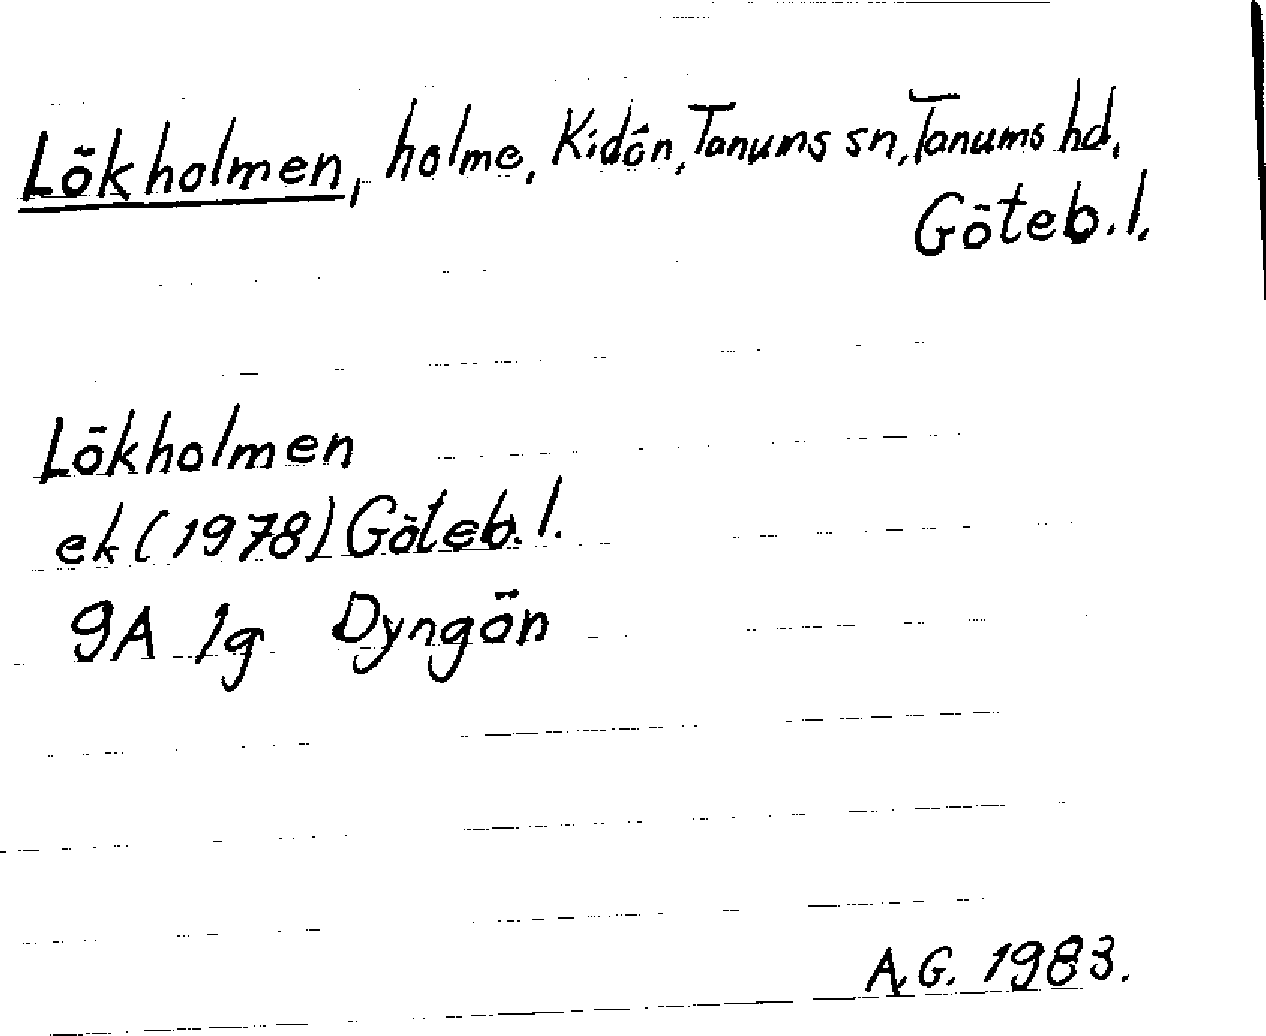 Lökholmen, holme, Kidön, Tanums sn, Tanums hd,
Göteb. l.
Lökholmen
ek (1978) Göteb. l.
9A 1g Dyngön
A.G. 1983.